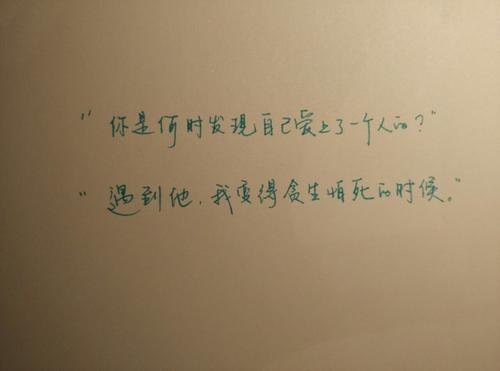 "你是何时发现自己爱上了一个人的?"
"遇到他,我变得贪生怕死的时候。"